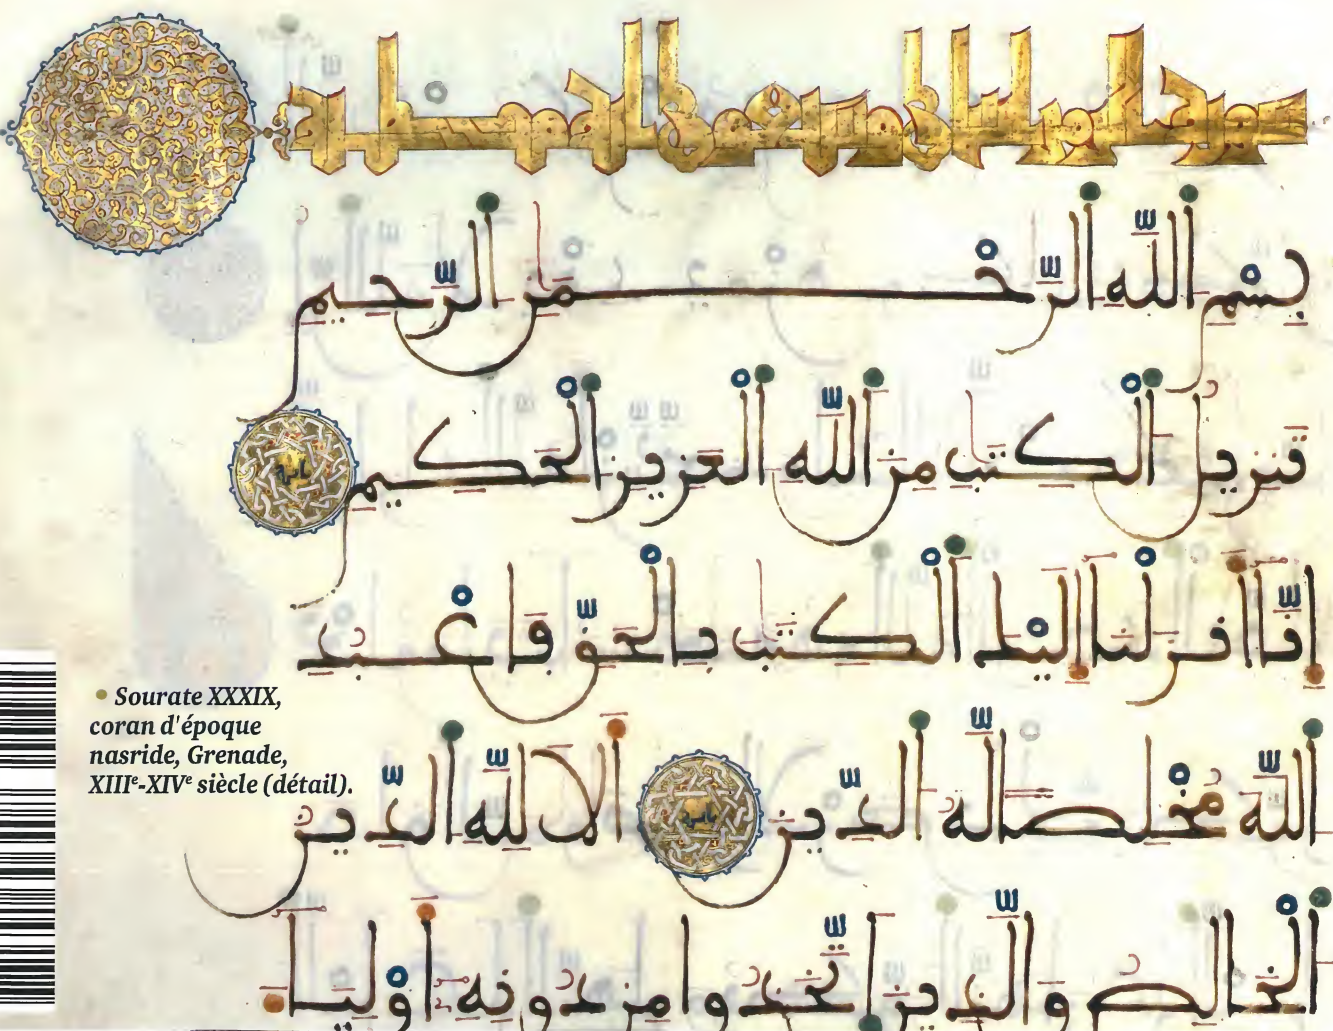 سورة الزمر
بِسْمِ اللَّهِ الرَّحْمَٰنِ الرَّحِيمِ
تَنزِيلُ الْكِتَٰبِ مِنَ اللَّهِ الْعَزِيزِ الْحَكِيمِ
إِنَّا أَنزَلْنَا إِلَيْكَ الْكِتَٰبَ بِالْحَقِّ فَاعْبُدِ
اللَّهَ مُخْلِصًا لَّهُ الدِّينَ أَلَا لِلَّهِ الدِّينُ
الْخَالِصُ وَالَّذِينَ اتَّخَذُوا مِن دُونِهِ أَوْلِيَاءَ
• Sourate XXXIX,
coran d'époque
nasride, Grenade,
XIIIe-XIVe siècle (détail).